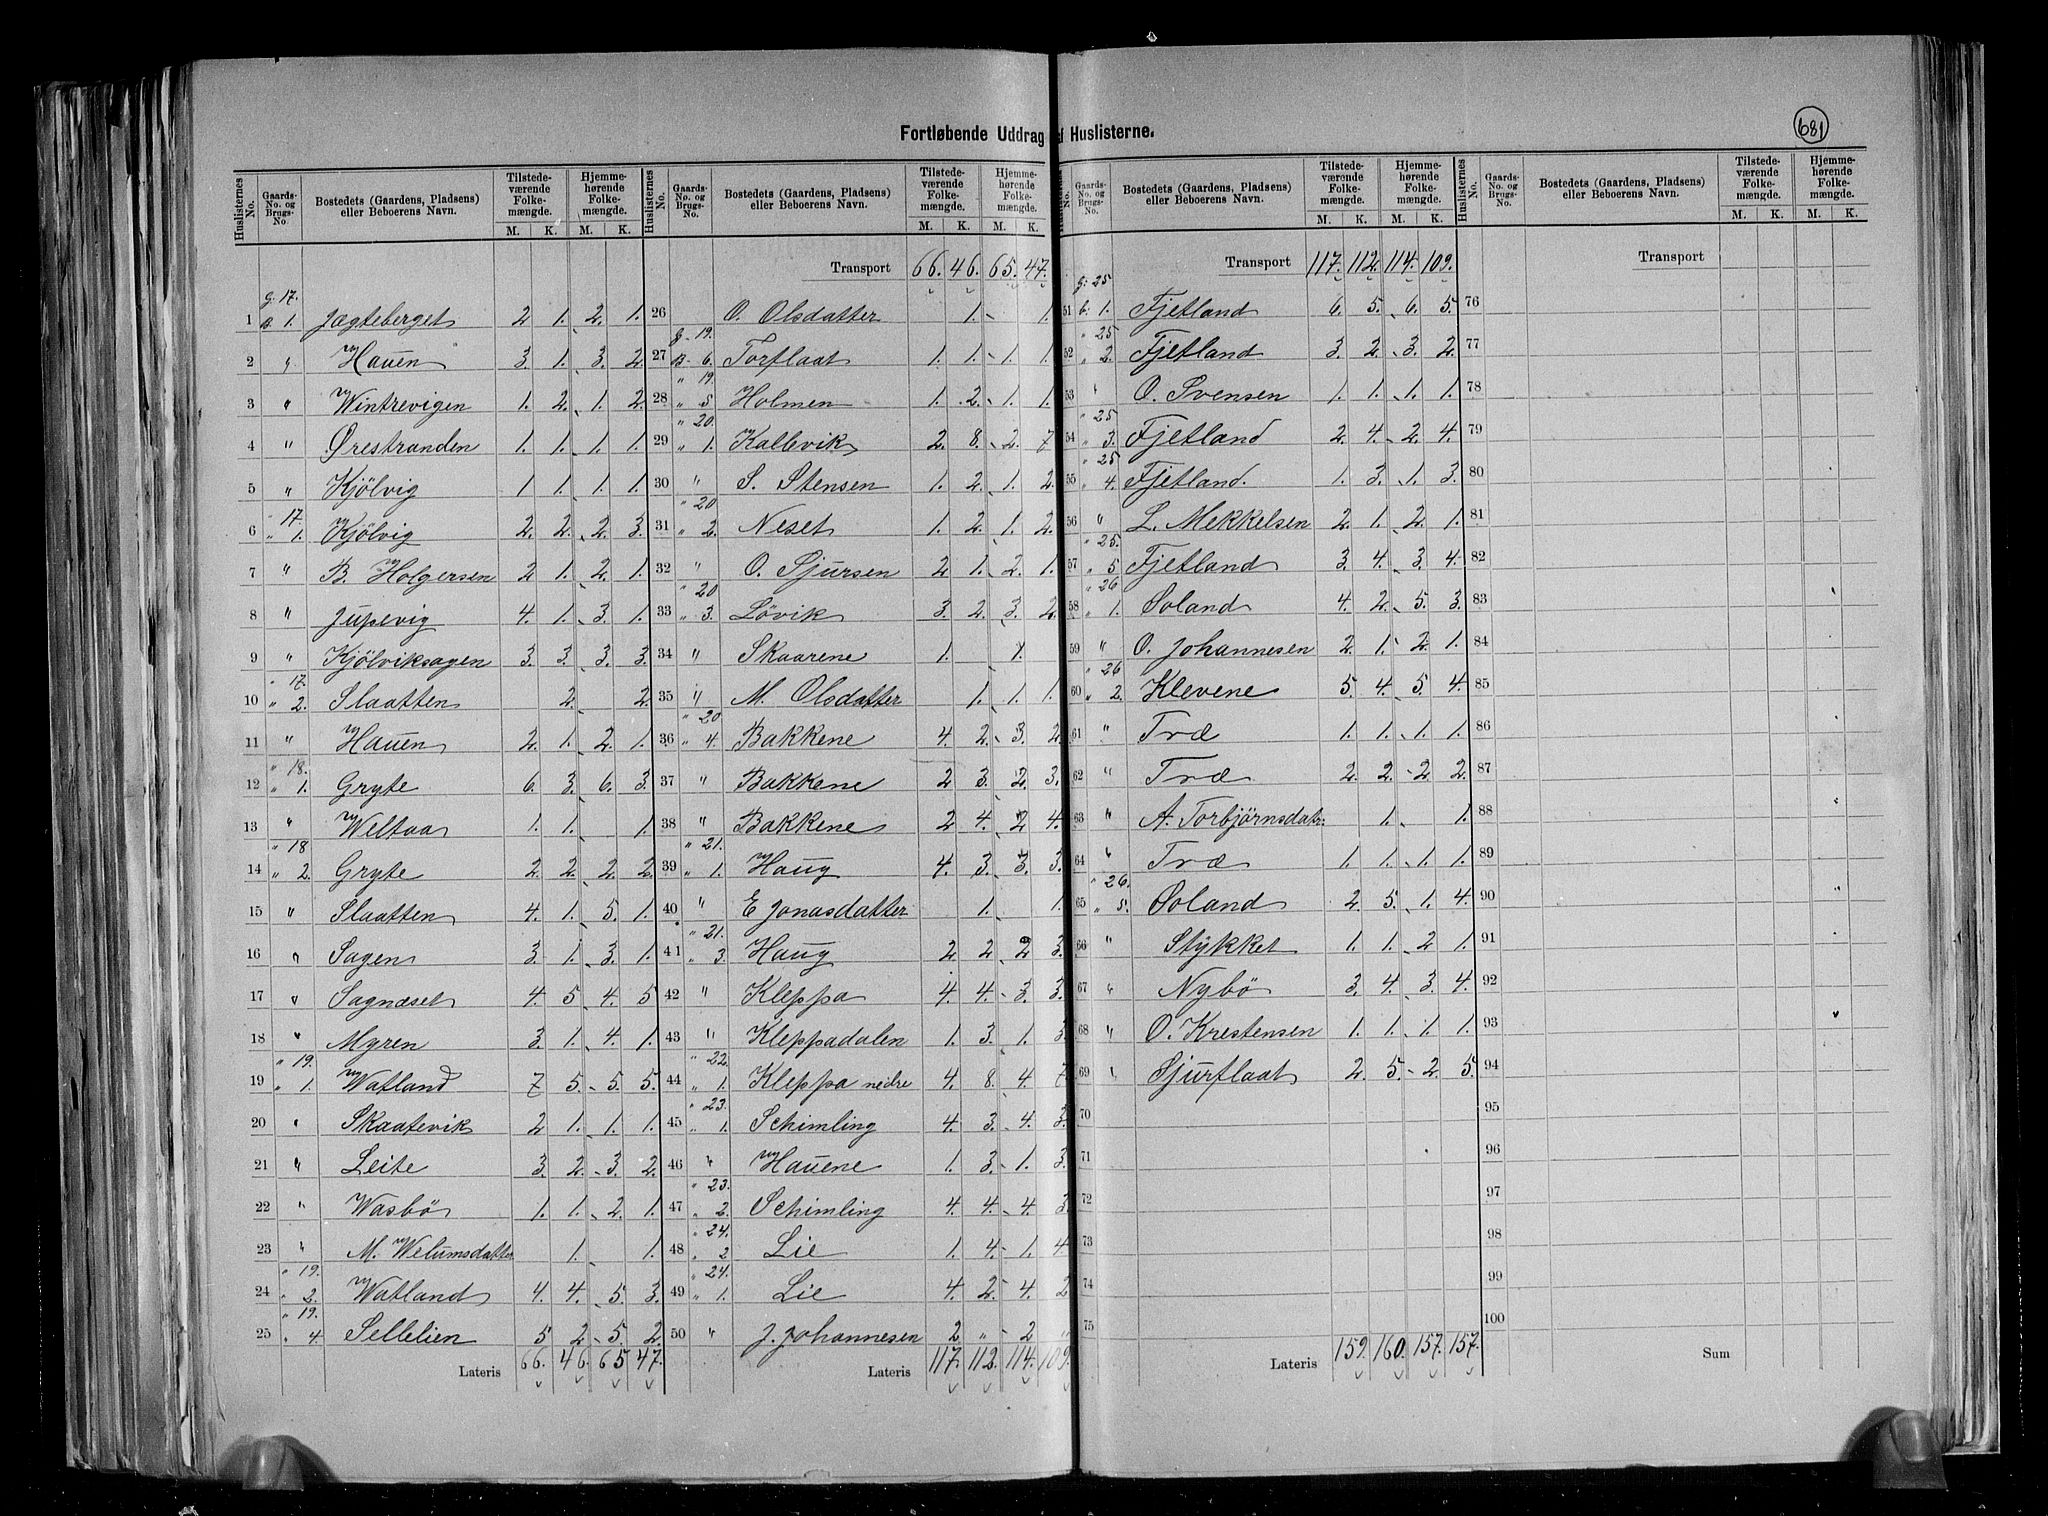 Fortløbende Uddrag af Huslisterne.
681
Huslisternes No. | Gaards-No. og Brugs-No. | Bostedets (Gaardens, Pladsens) eller Beboerens Navn. | Tilstedeværende Folkemængde. M. K. | Hjemmehørende Folkemængde. M. K.
G. 17.
1 B 1. Jægteberget 2 1. 2. 1.
2 " Hauen 3. 1. 3. 2.
3 " Wintrevigen 1. 2. 1. 2.
4 " Ørestranden 1. 1. 1. 1.
5 " Kjölvig 1 1. 1. 1.
" 17.
6 " 1. Kjölvig 2. 2. 2. 3.
7 " B. Holgersen 2 1. 2. 1.
8 " Jupevig 4. 1. 3. 1.
9 " Kjölviksagen 3. 3. 3. 3.
" 17.
10 " 2. Slaatten 2. 2.
11 " Hauen 2. 1. 2. 1.
" 18.
12 " 1. Gryte 6. 3. 6. 3.
13 " Weltaa 1. 1. 1.
" 18
14 " 2. Gryte 2. 2. 2. 2.
15 " Slaatten 4. 1. 5. 1.
16 " Sagen 3. 1. 3. 1.
17 " Sagnæset 4. 5 4. 5
18 " Myren 3. 1. 4. 1.
" 19.
19 " 1. Watland 7 5. 5. 5.
20 " Skaatevik 2 1. 1. 1.
21 " Leite 3. 2. 3. 2.
22 " Wasbö 1. 1. 2. 1.
23 " M. Welumsdatter 1. 1.
" 19.
24 " 2. Watland 4. 4. 5. 3.
" 19.
25 " 4. Sellelien 5 2. 5. 2
Lateris 66. 46. 65. 47.
Huslisternes No. | Gaards-No. og Brugs-No. | Bostedets (Gaardens, Pladsens) eller Beboerens Navn. | Tilstedeværende Folkemængde. M. K. | Hjemmehørende Folkemængde. M. K.
Transport 66. 46. 65. 47.
26 O. Olsdatter 1. 1.
G. 19.
27 B. 6. Torflaat 1. 1. 1. 1.
" 19.
28 " 5 Holmen 1. 2. 1. 1.
" 20.
29 " 1. Kallevik 2. 8. 2. 7
30 " S. Stensen 1. 2. 1. 2.
" 20
31 " 2. Neset 1. 2. 1. 2.
32 " O. Sjursen 2 1. 2. 1.
" 20
33 " 3. Lövik 3. 2. 3. 2.
34 " Skaarene 1. 1.
35 " M. Olsdatter 1. 1. 1.
" 20
36 " 4. Bakkene 4. 2. 3. 2.
37 " Bakkene 2 3. 2. 3.
38 " Bakkene 2 4. 2 4.
" 21.
39 " 1. Haug 4. 3. 3. 3.
40 " E Jonasdatter 1. 1.
" 21.
41 " 3. Haug 2 2. 2 3.
42 " Kleppa 4. 4. 3. 3.
43 " Kleppadalen 1. 3. 1. 3.
" 22.
44 " 1. Kleppa nedre 4. 8. 4. 7
" 23.
45 " 1. Schimling 4. 3. 4. 3.
46 " Hauene 1. 3. 1. 3.
" 23.
47 " 2. Schimling 4. 4. 4. 3.
" 24.
48 " 2 Lie 1. 4. 1. 4.
" 24.
49 " 1. Lie 4. 2. 4. 2
50 " J. Johannesen 2 " 2 "
Lateris 117. 112. 114. 109.
No. | Gaards-No. og Brugs-No. | Bostedets (Gaardens, Pladsens) eller Beboerens Navn. | Tilstedeværende Folkemængde. M. K. | Hjemmehørende Folkemængde. M. K.
Transport 117. 112. 114. 109.
g. 25
51 b. 1. Fjetland 6. 5. 6. 5.
" 25
52 " 2. Fjetland 3. 2. 3. 2.
53 " O. Svensen 1. 1. 1. 1.
" 25
54 " 3. Fjetland 2. 4. 2. 4.
" 25
55 " 4. Fjetland. 1. 3. 1. 3.
56 " L. Mekkelsen 2. 1. 2. 1.
" 25.
57 " 5 Fjetland 3. 4. 3. 4.
" 26
58 " 1. Soland 4. 2. 5. 3.
59 " O. Johannesen 2. 1. 2. 1.
" 26
60 " 2. Klevene 5. 4. 5. 4.
61 " Træ 1. 1. 1. 1.
62 " Træ 2. 2. 2 2.
63 " A. Torbjørnsdatr. 1. 1.
64 " Træ 1. 1. 1. 1.
" 26.
65 " 5. Soland 2. 5. 1. 4.
66 " Stykket 1. 1. 2 1.
67 " Nybö 3. 4. 3. 4.
68 " O. Krestensen 1. 1. 1. 1.
69 " Sjurflaat 2. 5. 2. 5.
70
71
72
73
74
75
Lateris 159. 160. 157. 157.
Huslisternes No. | Gaards-No. og Brugs-No. | Bostedets (Gaardens, Pladsens) eller Beboerens Navn. | Tilstedeværende Folkemængde. M. K. | Hjemmehørende Folkemængde. M. K.
Transport
76
77
78
79
80
81
82
83
84
85
86
87
88
89
90
91
92
93
94
95
96
97
98
99
100
Sum